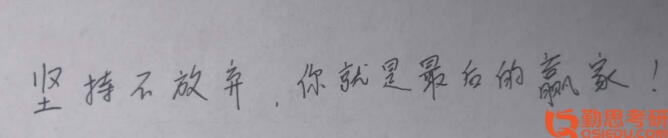 坚持不放弃，你就是最后的赢家！
勤思考研
QSIEDU.COM